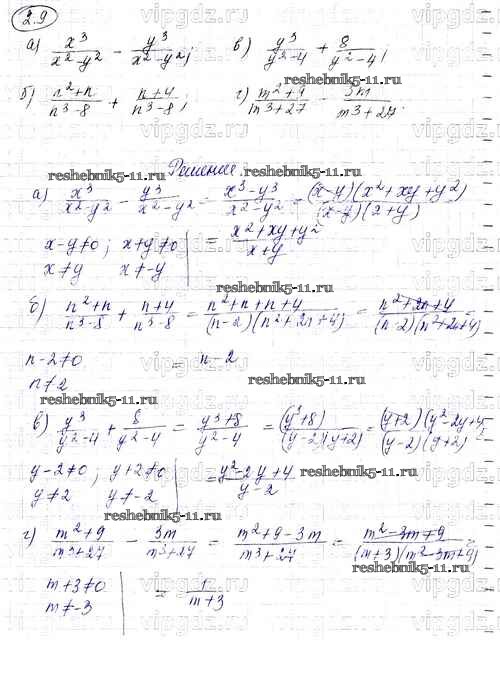 2.9
а) x³/(x²-y²) - y³/(x²-y²); в) y³/(y²-4) + 8/(y²-4);
б) (n²+n)/(n³-8) + (n+4)/(n³-8); г) (m²+9)/(m³+27) - 3m/(m³+27).
Решение.
а) x³/(x²-y²) - y³/(x²-y²) = (x³-y³)/(x²-y²) = (x-y)(x²+xy+y²)/(x-y)(2+y)
x-y≠0; x+y≠0 | = (x²+xy+y²)/(x+y)
x≠y x≠-y
б) (n²+n)/(n³-8) + (n+4)/(n³-8) = (n²+n+n+4)/(n-2)(n²+2n+4) = (n²+2n+4)/(n-2)(n²+2n+4) =
n-2≠0 = n-2
n≠2
в) y³/(y²-4) + 8/(y²-4) = (y³+8)/(y²-4) = (y³+8)/(y-2)(y+2) = (y+2)(y²-2y+4)/(y-2)(y+2) =
y-2≠0; y+2≠0 | = (y²-2y+4)/(y-2)
y≠2 y≠-2
г) (m²+9)/(m³+27) - 3m/(m³+27) = (m²+9-3m)/(m³+27) = (m²-3m+9)/(m+3)(m²-3m+9) =
m+3≠0 | = 1/(m+3)
m≠-3
vipgdz.ru
reshebnik5-11.ru